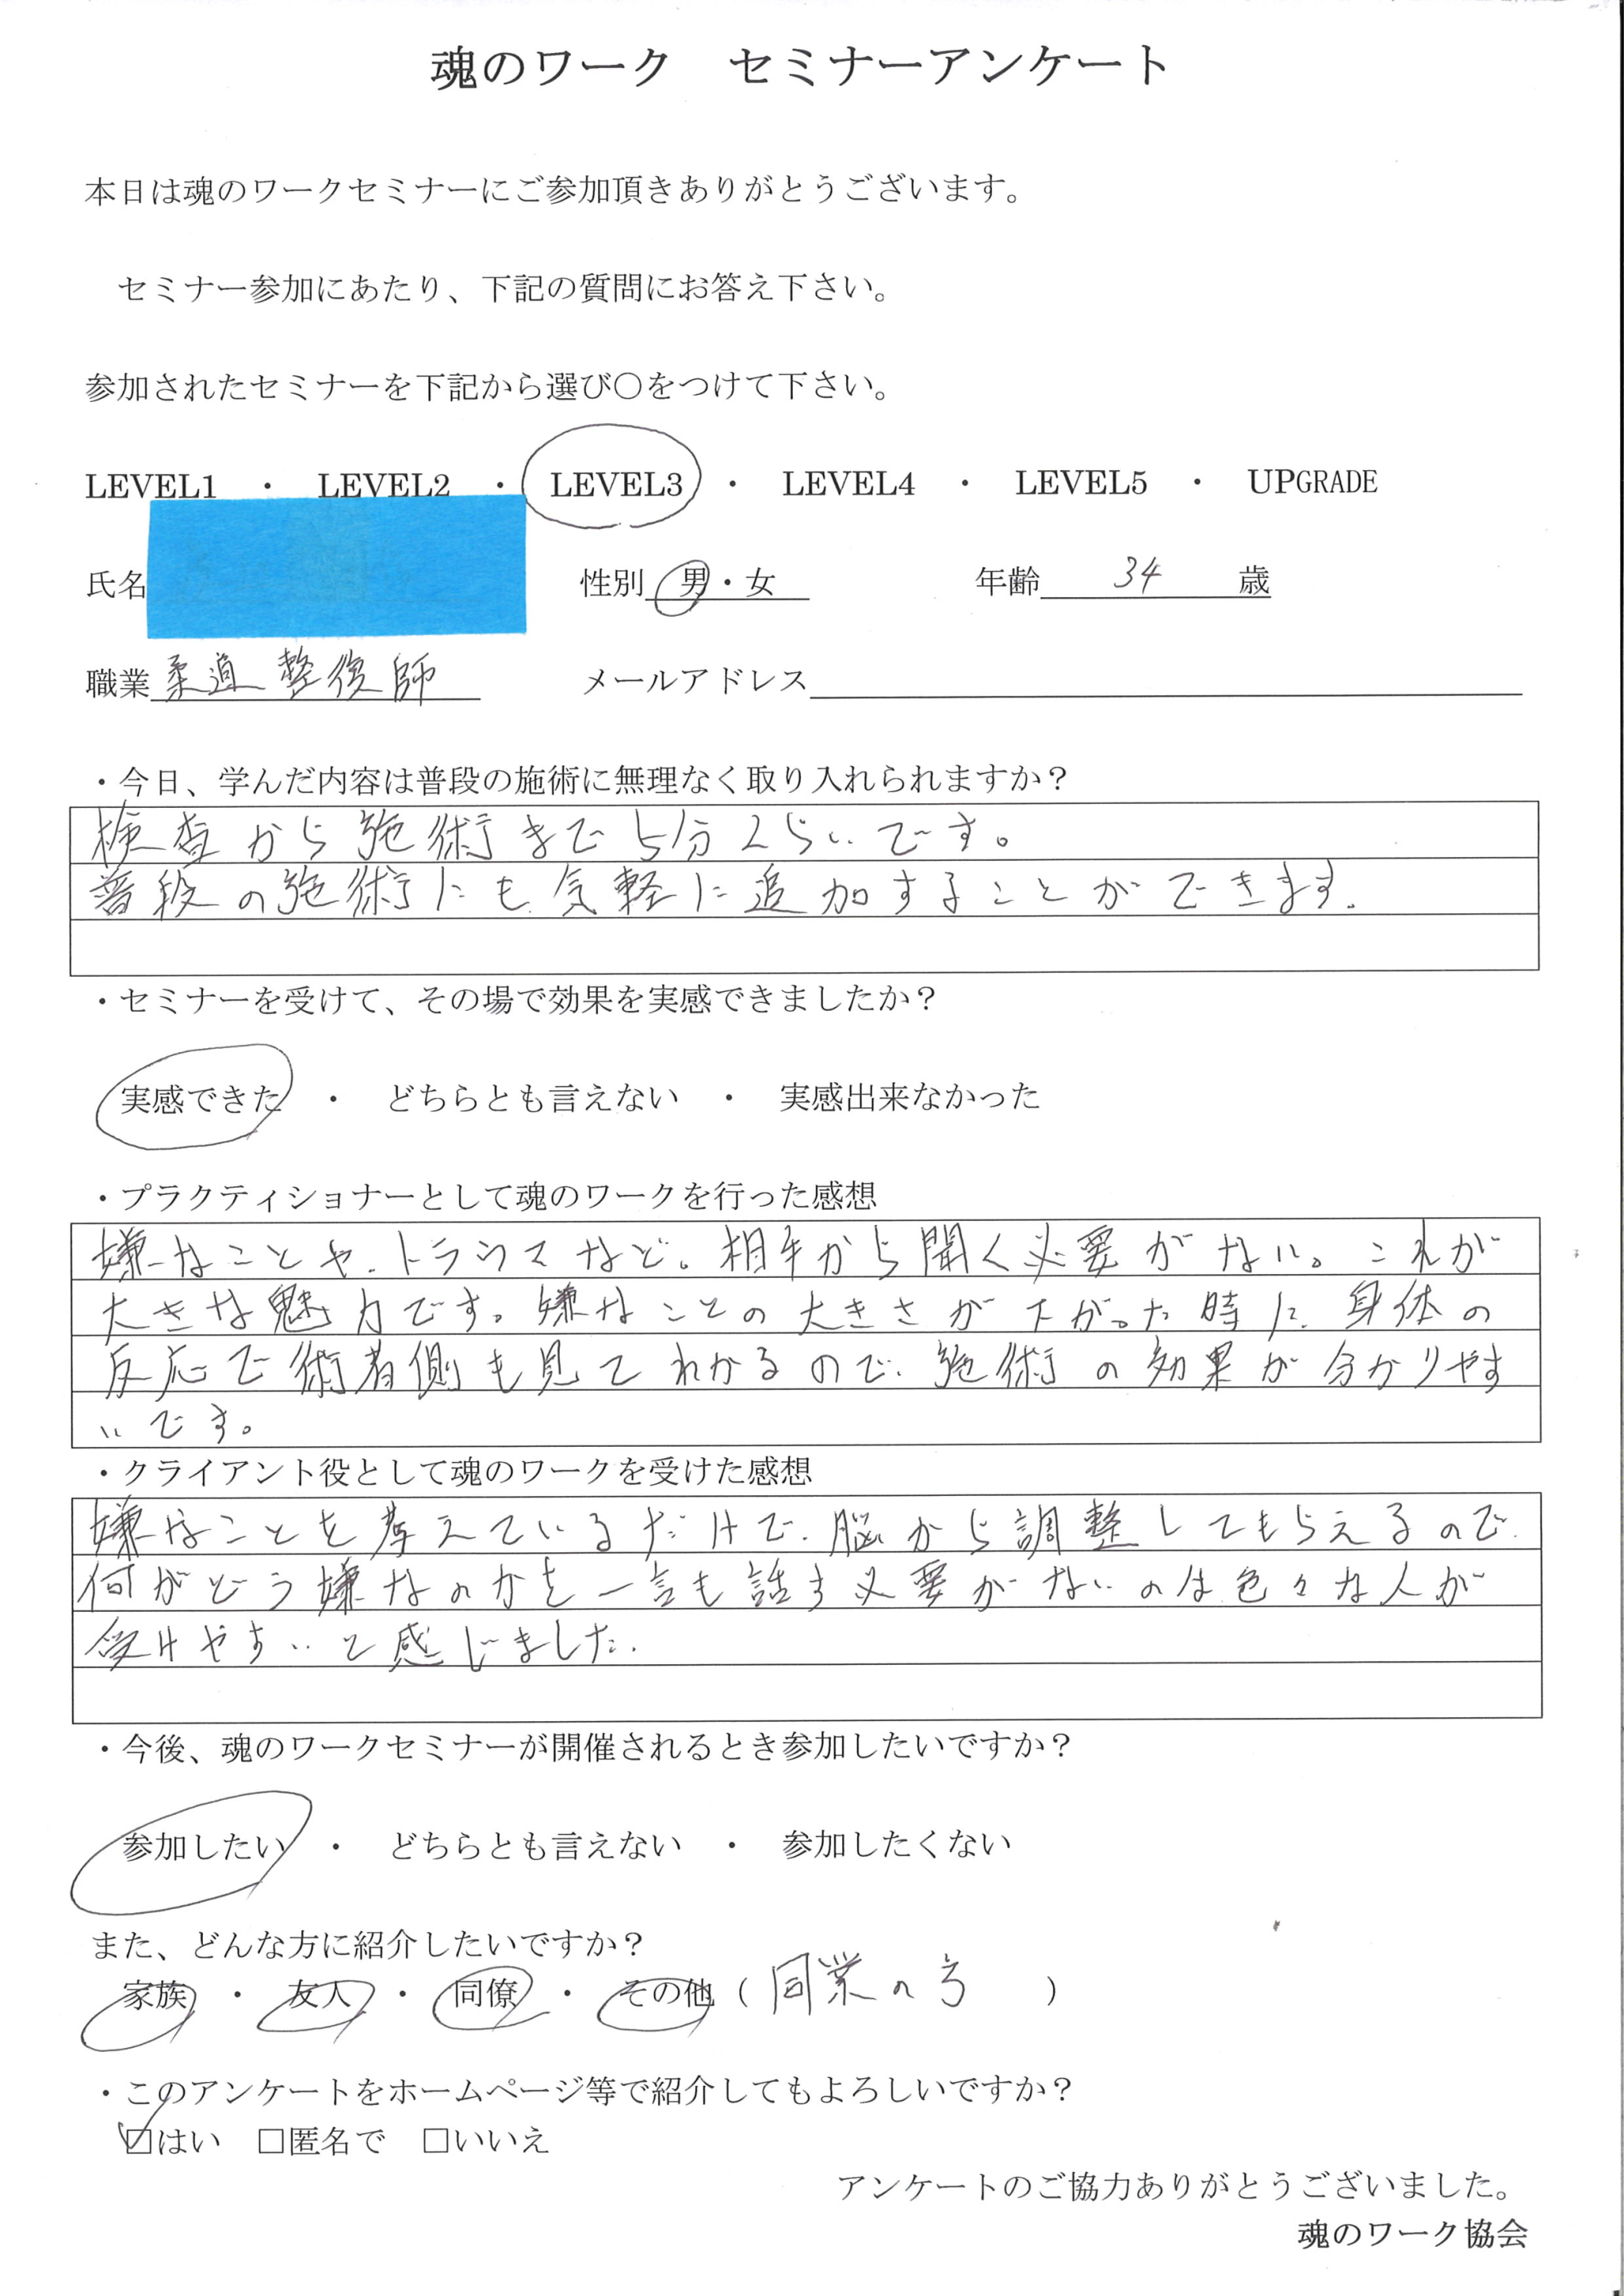 魂のワーク　セミナーアンケート
本日は魂のワークセミナーにご参加頂きありがとうございます。
セミナー参加にあたり、下記の質問にお答え下さい。
参加されたセミナーを下記から選び〇をつけて下さい。
LEVEL1　・　LEVEL2　・　LEVEL3　・　LEVEL4　・　LEVEL5　・　UPGRADE
氏名　性別　男・女　年齢　34　歳
職業　柔道整復師　メールアドレス
・今日、学んだ内容は普段の施術に無理なく取り入れられますか？
検査から施術まで5分くらいです。
普段の施術にも気軽に追加することができます。
・セミナーを受けて、その場で効果を実感できましたか？
実感できた　・　どちらとも言えない　・　実感出来なかった
・プラクティショナーとして魂のワークを行った感想
嫌なことや、トラウマなど。相手から聞く必要がない。これが
大きな魅力です。嫌なことの大きさが下がった時に、身体の
反応で術者側も見てわかるので、施術の効果が分かりやす
いです。
・クライアント役として魂のワークを受けた感想
嫌なことを考えているだけで、脳から調整してもらえるので、
何がどう嫌なのかを一言も話す必要がないのは色々な人が
受けやすいと感じました。
・今後、魂のワークセミナーが開催されるとき参加したいですか？
参加したい　・　どちらとも言えない　・　参加したくない
また、どんな方に紹介したいですか？
家族　・　友人　・　同僚　・　その他（同業の方　）
・このアンケートをホームページ等で紹介してもよろしいですか？
☑はい　□匿名で　□いいえ
アンケートのご協力ありがとうございました。
魂のワーク協会